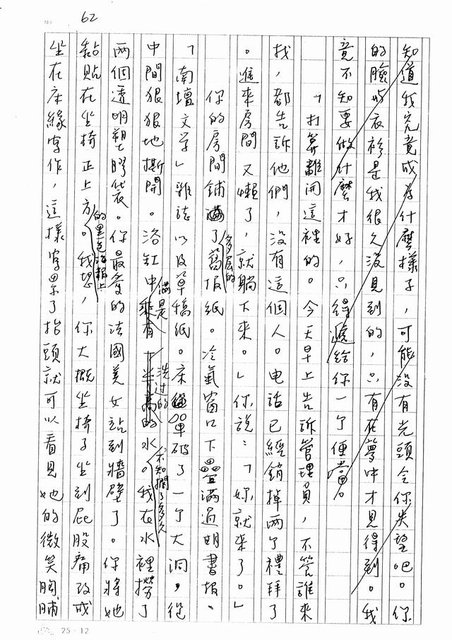 62
知道我究竟成為什麼樣子，可能沒有先頭令你失望吧。你
的臉與衣衫是我很久沒見到的，只有在夢中才見得到。我
竟不知要做什麼才好，只得遞給你一個便當。
「打算離開這裡的。今天早上告訴管理員，不管誰來
找，都告訴他們，沒有這個人。電話已經銷掉兩個禮拜了
。進來房間又懶了，就躺下來。」你說：「妳就來了。」
你的房間鋪滿了多層的舊報紙。冷氣窗口下疊滿過期書報、
「南壇文学」雜誌以及草稿紙。床單破了一個大洞，從
中間狠狠地撕開。浴缸中備有半高的水。我在水裡撈了
兩個透明塑膠袋。你最愛的法國美女站到牆壁了。你將她
黏貼在坐椅正上方的黑色海報上。我想你大概坐椅子坐到屁股痛改成
坐在床緣寫作，這樣寫累了抬頭就可以看見她的微笑胸脯
25×12